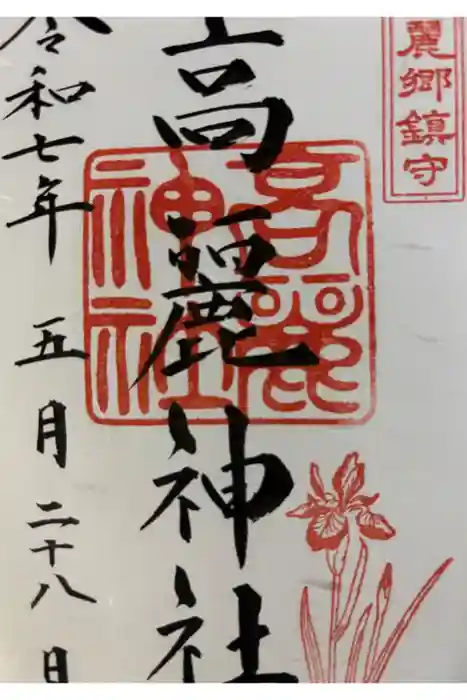 麗郷鎮守
高麗神社
高麗神社
令和七年 五月二十八日